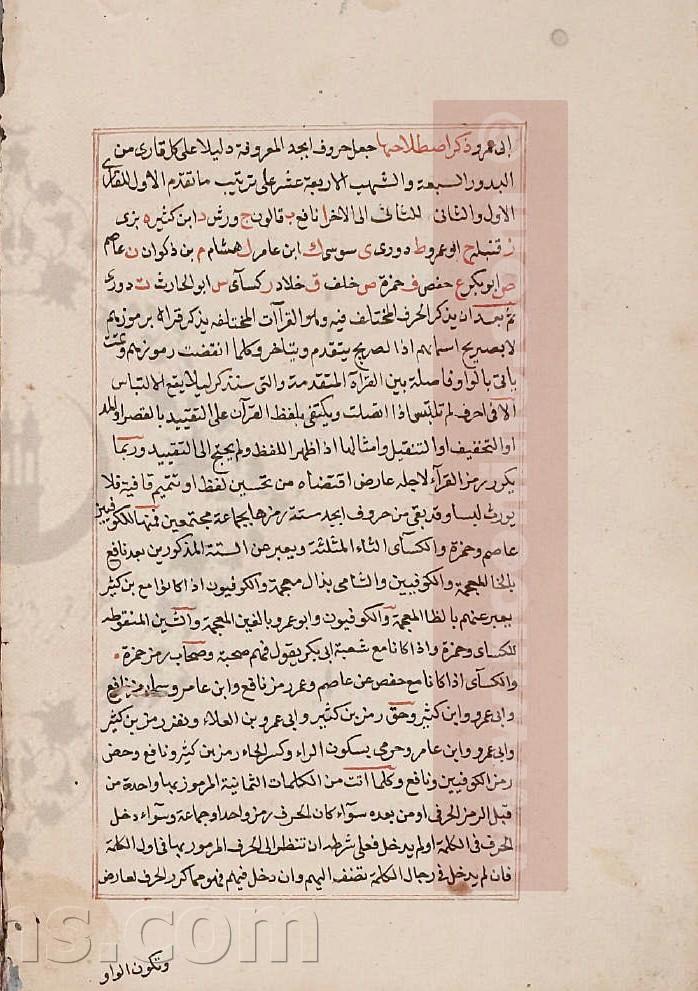 الى عمرو ذكر اصطلاحها جعل حروف ابجد المعروفة دليلا على كل قارئ من
البدور السبعة والشهب الاربعة عشر على ترتيب ما تقدم الاول للقارئ
الاول والثانى للثانى الى الاخر ا نافع ب قالون ج ورش د ابن كثير ه بزى
ز قنبل ح ابو عمرو ط دورى ى سوسى ك ابن عامر ل هشام م بن ذكوان ن عاصم
ص ابو بكر ع حفص ف حمزة ض خلف ق خلاد ر كسآى س ابو الحارث ت دورى
ثم بعد ان يذكر الحرف المختلف فيه وهو القرآات المختلفه يذكر قراه برموزهم
لا بصريح اسمائهم اذ الصريح يتقدم ويتاخر وكلما انقضت رموزهم وتمت
ياتى بالواو فاصلة بين القرآة المتقدمة والتى ستذكر ليلا يقع الالتباس
الا فى احرف لم تلتبس اذا اتصلت ويكتفى بلفظ القرآن على التقييد بالقصر او المد
او التخفيف او التثقيل وامثالها اذا ظهر اللفظ ولم يحتج الى التقييد وربما
يكرر رمز القرآء لاجله عارض اقتضاه من تحسين لفظ او تتميم قافية فلا
يورث لبسا وقد بقى من حروف ابجد ستة رمزها بجماعة مجتمعين فمنها للكوفيين
عاصم وحمزة والكسآى الثاء المثلثة ويعبر عن الستة المذكورين بعد نافع
بالخا المعجمة والكوفيين والشامى بذال معجمة والكوفيون اذا كانوا مع بن كثير
يعبر عنهم بالظا المعجمة والكوفيون وابو عمرو بالغين المعجمة والشين المنقوطه
للكساى وحمزة واذا كانا مع شعبة ابى بكر يقول فيهم صحبة وصحاب رمز حمزة
والكسآى اذا كانا مع حفص عن عاصم وعم رمز نافع وابن عامر وسما رمز نافع
وابى عمرو وابن كثير وحق رمز بن كثير وابى عمرو بن العلاء ونفر رمز بن كثير
وابى عمرو وابن عامر وحرمى بسكون الراء وكسر الحاء رمز بن كثير ونافع وحصن
رمز الكوفيين ونافع وكلما اتت من الكلمات الثمانية المرموز بها واحدة من
قبل الرمز الحرفى او من بعده سوآء كان الحرف رمز واحد او جماعة وسوآء دخل
الحرف فى الكلمة او لم يدخل فعلى شرطه ان تنظر الى الحرف المرموز بها فى اول الكلمة
فان لم يدخل فى رجال الكلمة تضف اليهم وان دخل فيهم فهو مما كرر الحرف لعارض
وتكون الواو
ns.com